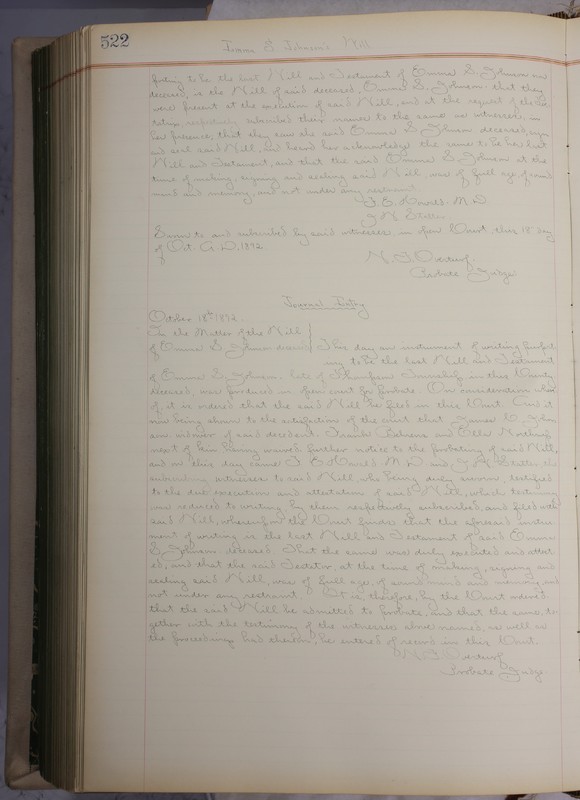 522
Emma S. Johnson's Will
porting to be the last Will and Testament of Emma S. Johnson now
deceased, is the Will of said deceased, Emma S. Johnson that they
were present at the execution of said Will, and at the request of the tes-
tatrix, respectively subscribed their names to the same as witnesses, in
her presence, that they saw the said Emma S. Johnson deceased, sign
and seal said Will, and heard her acknowledge the same to be her last
Will and Testament, and that the said Emma S. Johnson at the
time of making, signing and sealing said Will, was of full age, of sound
mind and memory, and not under any restraint.
M. D.
Sworn to and subscribed by said witnesses in open Court this 18" day
of Oct. A. D. 1892.
Probate Judge
Journal Entry
October 18th 1892.
In the Matter of the Will
of Emma S. Johnson deceased } This day an instrument of writing purport-
ing to be the last Will and Testament
of Emma S. Johnson, late of Thompson Township in this County
deceased, was produced in open court for Probate. On consideration where-
of, it is ordered that the said Will be filed in this Court. And it
now being shown to the satisfaction of the court that James W. John-
son widower of said decedent, Frank and Ella
next of kin having waived further notice to the probating of said Will,
and on this day came M. D. and
subscribing witnesses to said Will, who being duly sworn, testified
to the due execution and attestation of said Will, which testimony
was reduced to writing by them respectively subscribed, and filed with
said Will, whereupon the Court finds that the aforesaid instru-
ment of writing is the last Will and Testament of said Emma
S. Johnson, deceased. That the same was duly executed and attest-
ed, and that the said Testator, at the time of making, signing and
sealing said Will, was of full age, of sound mind and memory, and
not under any restraint. It is, therefore, by the Court ordered
that the said Will be admitted to Probate, and that the same, to-
gether with the testimony of the witnesses above named, as well as
the proceedings had thereon, be entered of record in this Court.
Probate Judge